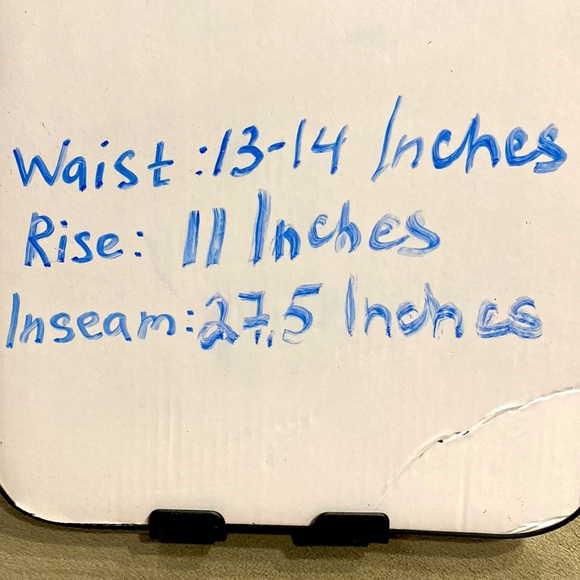 Waist: 13-14 Inches
Rise: 11 Inches
Inseam: 27,5 Inches